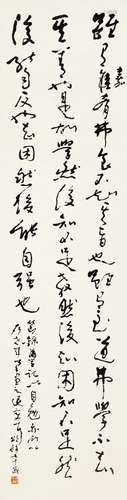 雖有嘉肴弗食不知其旨也雖有至道弗學不知
其善也是故學然後知不足教然後知困知不足然
後能自反也知困然後能自强也
節錄學記以自勉